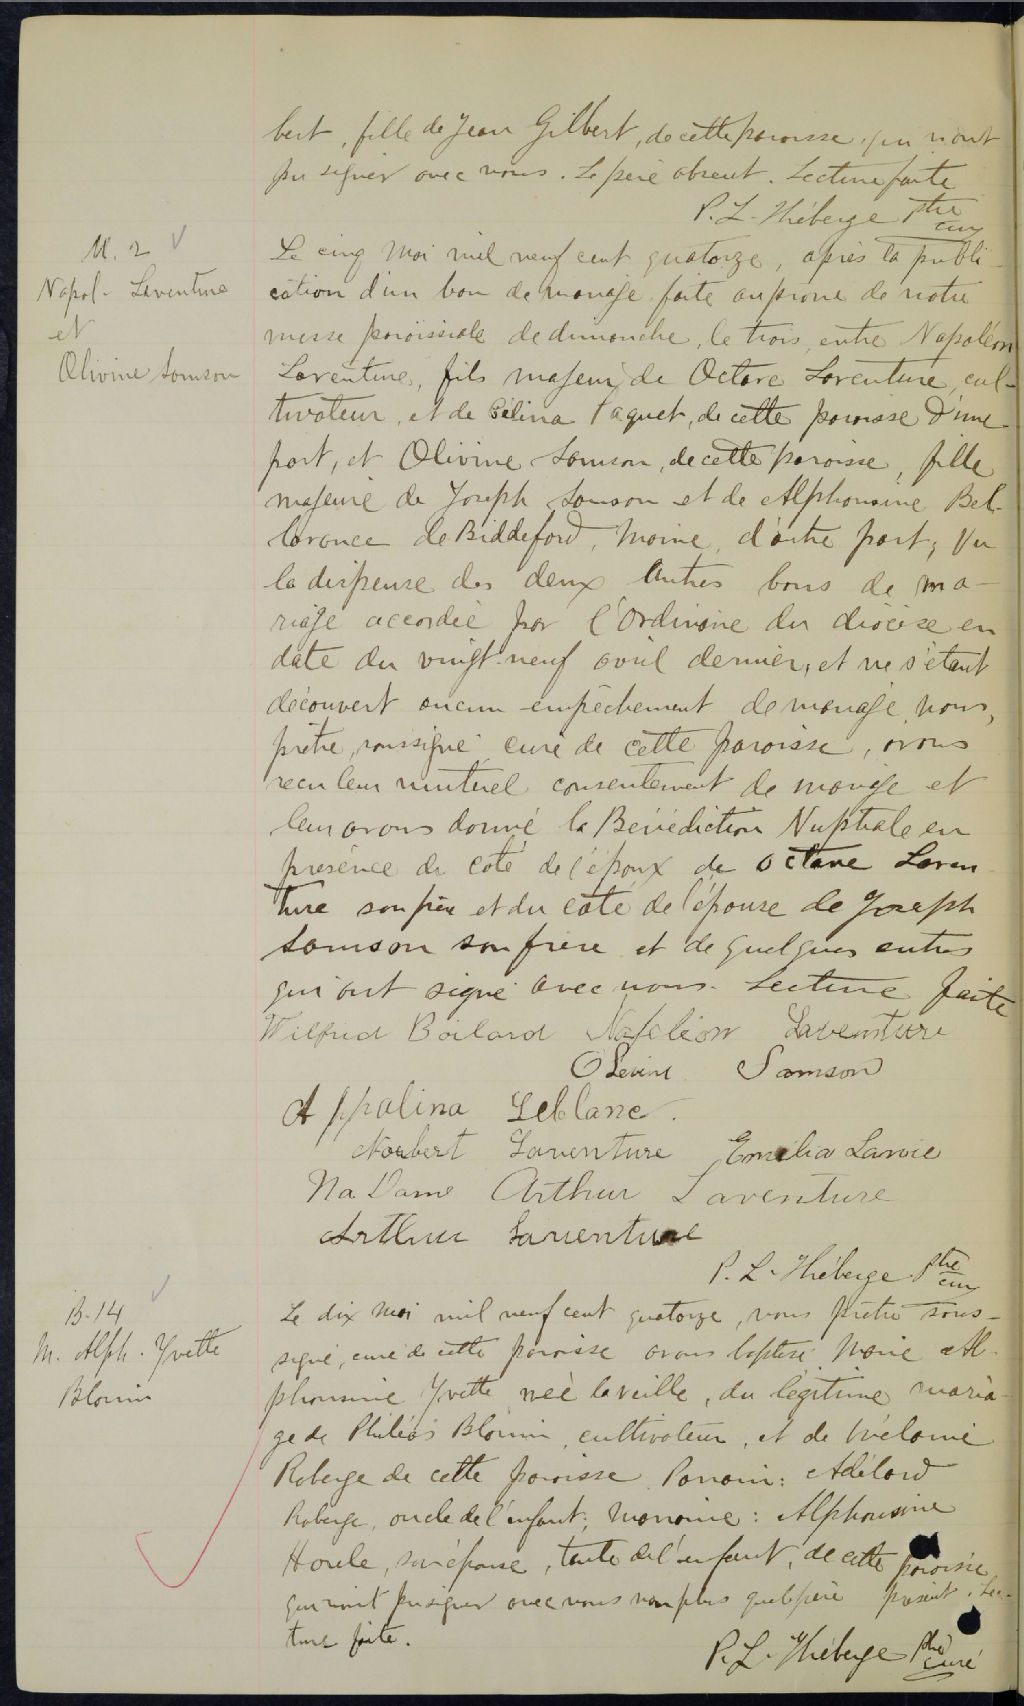 bert, fille de Jean Gilbert, de cette paroisse qui n'ont
pu signer avec nous. Le père absent. Lecture faite
P. L. Théberge Ptre
curé
M. 2
Napol. Laventure
et
Olivine Samson
Le cinq Mai mil neuf cent quatorze, après la publi-
cation d'un ban de mariage faite au prone de notre
messe paroissiale de dimanche, le trois, entre Napoléon
Laventure, fils majeur de Octave Laventure, cul-
tivateur, et de Célina Paquet, de cette paroisse d'une
part, et Olivine Samson, de cette paroisse, fille
majeure de Joseph Samson et de Alphonsine Bel-
lavance de Biddeford, Maine, d'autre part; Vu
la dispense des deux autres bans de ma-
riage accordée par l'Ordinaire du diocèse en
date du vingt-neuf avril dernier, et ne s'étant
découvert aucun empêchement de mariage, nous,
prêtre, soussigné curé de cette paroisse, avons
recu leur mutuel consentement de mariage et
leur avons donné la Bénédiction Nuptiale en
présence du coté de l'époux de Octave Laven
ture son père et du coté de l'épouse de Joseph
Samson son frère et de quelques autres
qui ont signé avec nous. Lecture faite
Wilfrid Boilard Napoléon Laventure
Olévine Samson
Appalina Leblanc.
Norbert Laventure Emélia Lavoie
Madame Arthur Laventure
Arthur Laventure
P. L. Théberge Ptre
curé
B. 14
M. Alph. Yvette
Blouin
Le dix Mai mil neuf cent quatorze, nous prêtre sous-
signé, curé de cette paroisse avons baptisé Marie Al-
phonsine Yvette, née la veille, du légitime maria-
ge de Philéas Blouin, cultivateur, et de Mélanie
Roberge de cette paroisse. Parrain: Adélard
Roberge, oncle de l'enfant; marraine: Alphonsine
Houle, son épouse, tante de l'enfant, de cette paroisse
qui n'ont pu signer avec nous non plus que le père présent. Lec-
ture faite.
P. L. Théberge ptre
curé